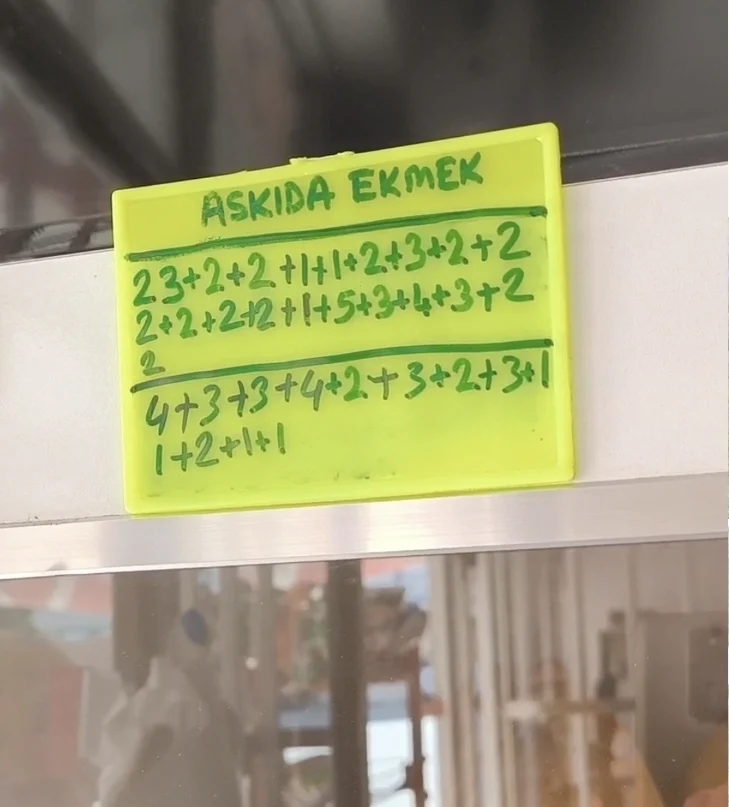 ASKIDA EKMEK
23+2+2+1+1+2+3+2+2
2+2+2+2+1+5+3+4+3+2
2
4+3+3+4+2+3+2+3+1
1+2+1+1